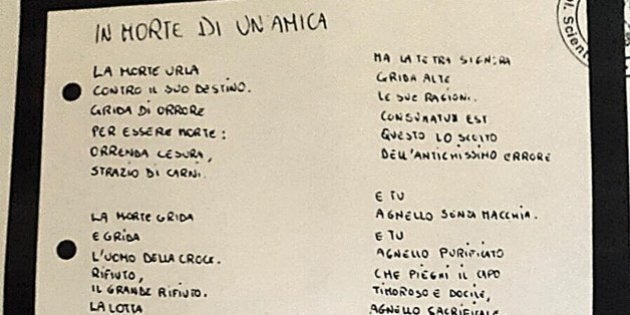 IN MORTE DI UN'AMICA
LA MORTE URLA
CONTRO IL SUO DESTINO.
GRIDA DI ORRORE
PER ESSERE MORTE:
ORRENDA CESURA,
STRAZIO DI CARNI.
LA MORTE GRIDA
E GRIDA
L'UOMO DELLA CROCE.
RIFIUTO,
IL GRANDE RIFIUTO.
LA LOTTA
MA LA TETRA SIGNORA
GRIDA ALTE
LE SUE RAGIONI.
CONSUMATUM EST
QUESTO LO SCOTTO
DELL'ANTICHISSIMO ERRORE
E TU
AGNELLO SENZA MACCHIA.
E TU
AGNELLO PURIFICATO
CHE PIEGHI IL CAPO
TIMOROSO E DOCILE,
AGNELLO SACRIFICALE